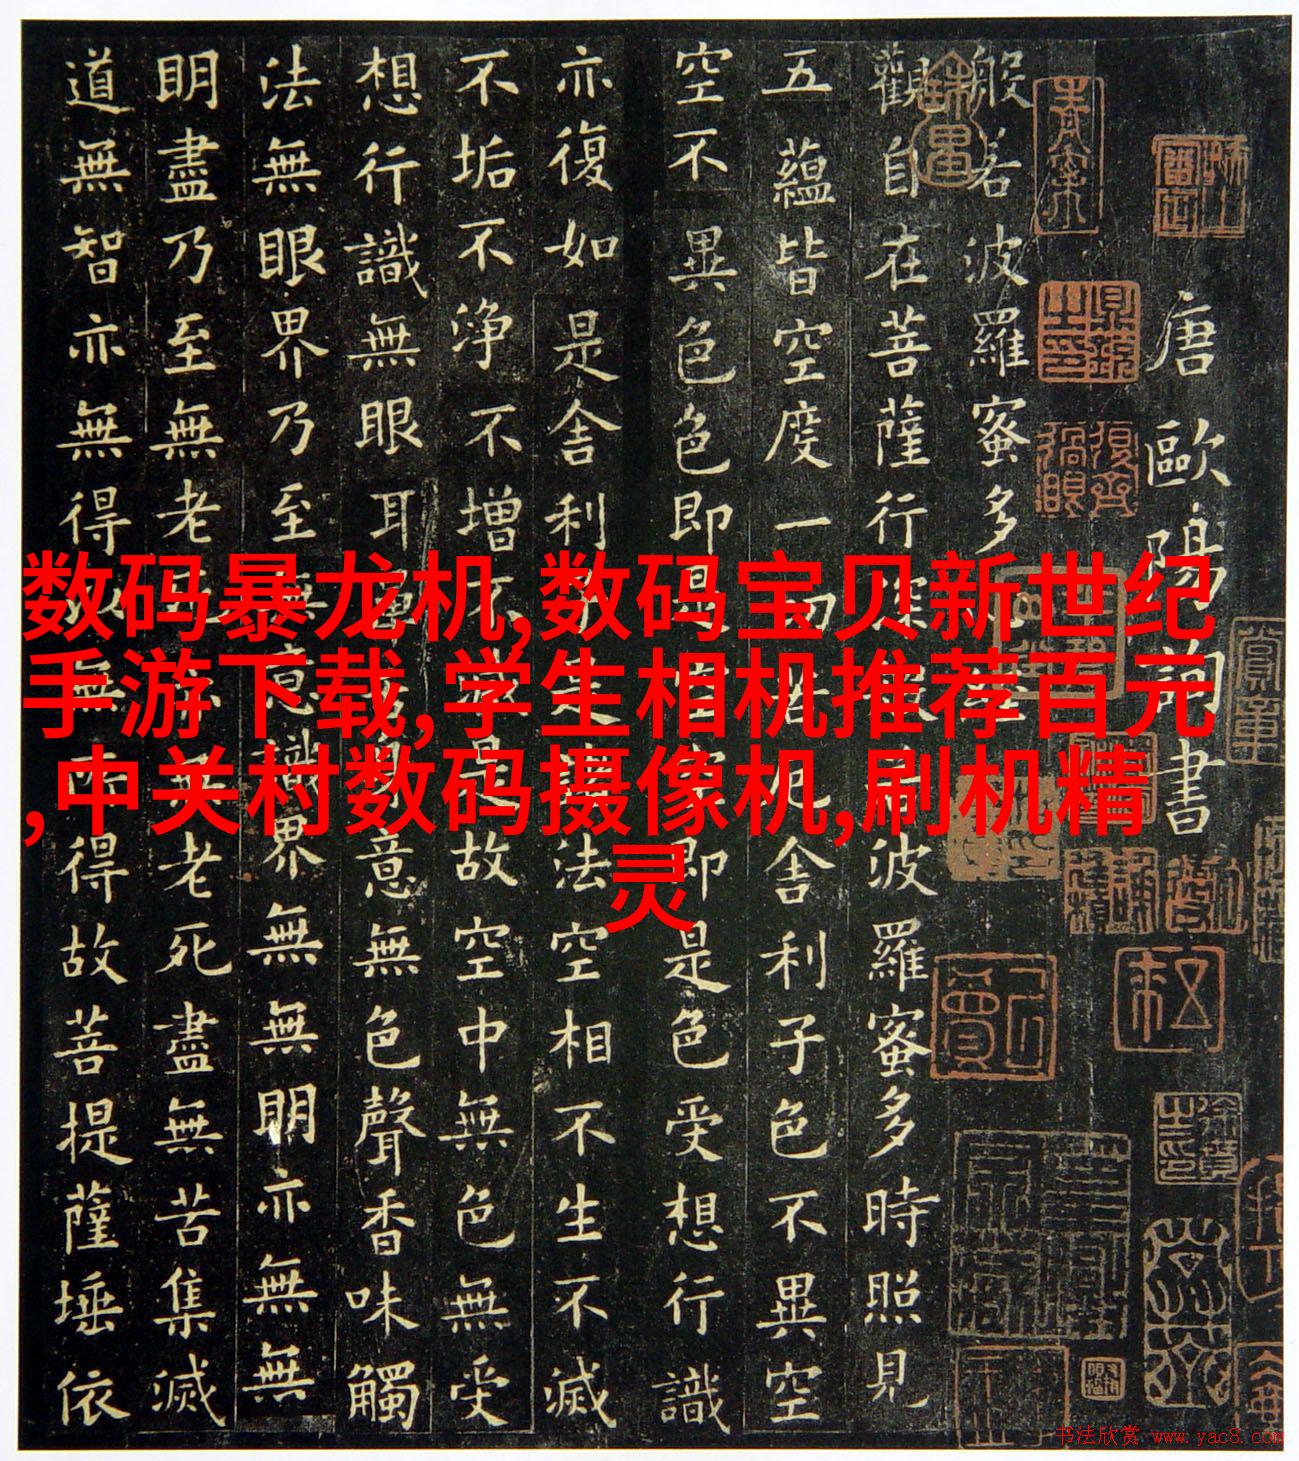 唐歐陽詢書
般若波羅蜜多
觀自在菩薩行深般若波羅蜜多時照見
五蘊皆空度一切苦厄舍利子色不異空
空不異色色即是空空即是色受想行識
亦復如是舍利子是諸法空相不生不滅
不垢不淨不增不減是故空中無色無受
想行識無眼耳鼻舌身意無色聲香味觸
法無眼界乃至無意識界無無明亦無無
明盡乃至無老死亦無老死盡無苦集滅
道無智亦無得以無所得故菩提薩埵依
数码暴龙机,数码宝贝新世纪
手游下载,学生相机推荐百元
,中关村数码摄像机,刷机精
灵
书法欣赏 www.yac8.com